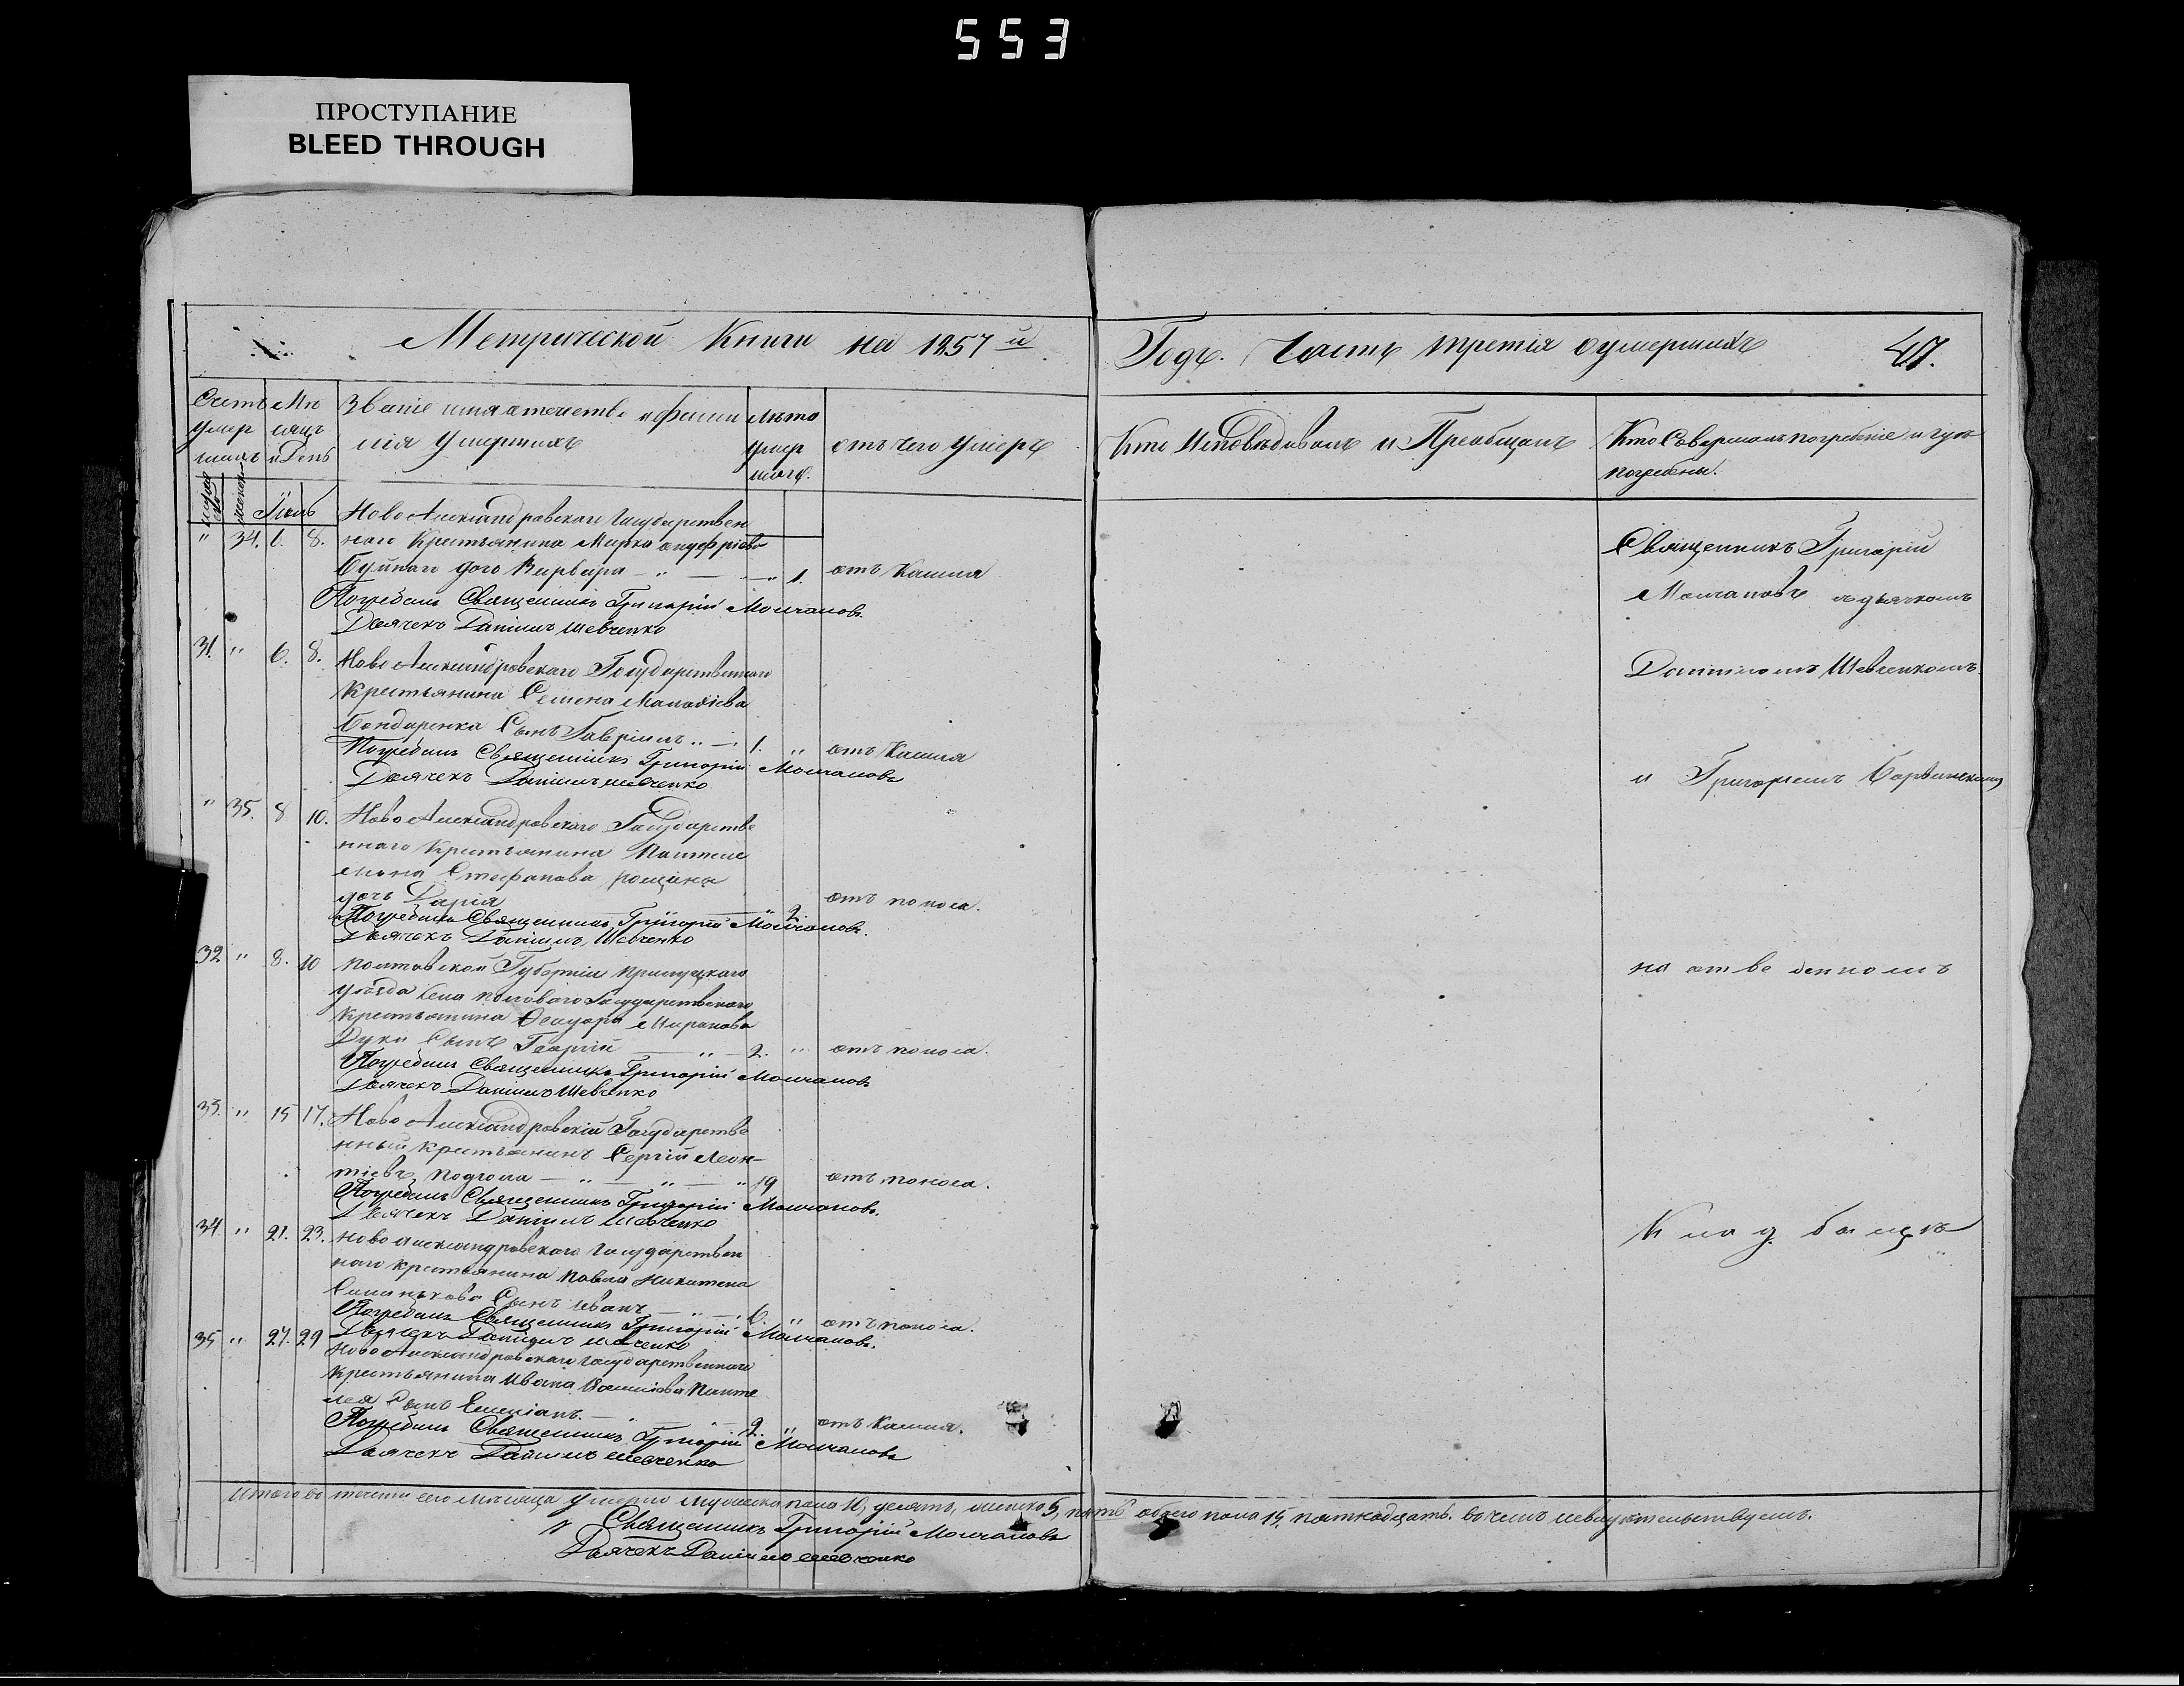 553
ПРОСТУПАНИЕ
BLEED THROUGH
Метрической Книги на 1857й
Годъ. Часть третія оумершихъ
47.
Счетъ умер шихъ
Мѣ сяцъ и День
Званіе имя отечество и фами
лія умершихъ
Лѣта умер шаго.
отъ чего умеръ
Кто Исповѣдывалъ и Пріобщалъ
Кто Совершалъ погребеніе и гдѣ
погребены.
Іюль
Ново Александровскаго Государствен
" 34. 6. 8. наго Крестьянина Марка
дочь Варвара " 1. отъ Кашля
Погребалъ Священникъ Григорій Молчановъ.
Дьячекъ Даніилъ Шевченко
31. " 6. 8. Ново Александровскаго Государственнаго
Крестьянина Семена
Бондаренка Сынъ Гавріилъ 1. " отъ Кашля
Погребалъ Священникъ Григорій Молчановъ
Дьячекъ Даніилъ Шевченко
" 35. 8 10. Ново Александровскаго Государстве
ннаго Крестьянина Панталей
мона Стефанова
дочь Дарія " 2. отъ поноса.
Погребалъ Священникъ Григорій Молчановъ.
Дьячекъ Даніилъ Шевченко
32 " 8. 10 Полтавской Губерніи Прилуцкаго
уѣзда Села Государственаго
Крестьянина Миронова
Дуки Сынъ Георгій 2. " отъ поноса.
Погребалъ Священникъ Григорій Молчановъ
Дьячекъ Даніилъ Шевченко
33. " 15 17. Ново Александровскій Государстве
нный крестьянинъ Сергій Леон-
тіевъ 19 отъ поноса.
Погребалъ Священникъ Григорій Молчановъ.
Дьячекъ Даніилъ Шевченко
34 " 21. 23. Ново Александровскаго Государствен
наго крестьянина Павла Никитина
Сынъ Иванъ 6. " отъ поноса.
Погребалъ Священникъ Григорій Молчановъ.
Дьячекъ Даніилъ Шевченко
35 " 27. 29 Ново Александровскаго Государственнаго
Крестьянина Ивана Панте
лея Сынъ 2. " отъ Кашля.
Погребалъ Священникъ Григорій Молчановъ
Дьячекъ Даніилъ Шевченко
Священникъ Григорій
Молчановъ съ дьячкомъ
Данииломъ Шевченкомъ
и Григоріемъ
на отве денномъ
Клад бищѣ
Итого во течении сего мѣсяца умерло мужеска пола 10, десять, женско 5, пять обоего пола 15, пятнадцать. во чемъ свидѣтельствуемъ.
Священникъ Григорій Молчановъ
Дьячекъ Даніилъ Шевченко